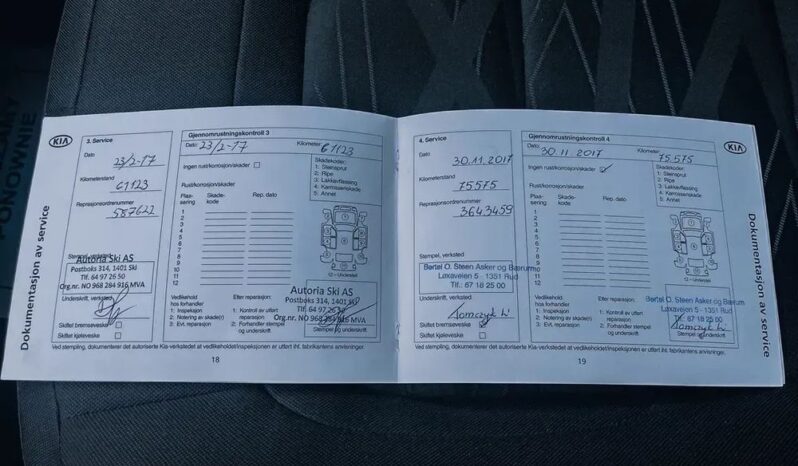 KIA
Dokumentasjon av service
3. Service
Dato
23/2-17
Kilometerstand
61123
Reprasjonsordrenummer
587622
Stempel, verksted:
Autoria Ski AS
Postboks 314, 1401 Ski
Tlf. 64 97 26 50
Org.nr. NO 968 284 916 MVA
Underskrift, verksted:
Skiftet bremsevæske
Skiftet kjølevæske
Gjennomrustningskontroll 3
Dato: 23/2-17
Kilometer 61123
Ingen rust/korrosjon/skader
Plassering
Skadekode
Rep. dato
1
2
3
4
5
6
7
8
9
10
11
12
Skadekoder:
1: Steinsprut
2: Ripe
3: Lakkavflassing
4: Karrosseriskade
5: Annet
12 - Understell
Autoria Ski AS
Postboks 314, 1401 Ski
Tlf. 64 97 26 50
Org.nr. NO 968 284 916 MVA
Vedlikehold hos forhandler
1: Inspeksjon
2: Notering av skade(r)
3: Evt. reparasjon
Etter reparasjon:
1: Kontroll av utført reparasjon
2: Forhandler stempel og underskrift
Stempel og underskrift
Ved stempling, dokumenterer det autoriserte Kia-verkstedet at vedlikeholdet/inspeksjonen er utført ihf. fabrikantens anvisninger.
18
4. Service
Dato
30.11.2017
Kilometerstand
75575
Reprasjonsordrenummer
3643459
Stempel, verksted:
Bertel O. Steen Asker og Bærum
Luxaveien 5 - 1351 Rud
Tlf: 67 18 25 00
Underskrift, verksted:
Tomczyk W
Skiftet bremsevæske
Skiftet kjølevæske
Gjennomrustningskontroll 4
Dato: 30.11.2017
Kilometer: 75575
Ingen rust/korrosjon/skader
Plassering
Skadekode
Rep. dato
1
2
3
4
5
6
7
8
9
10
11
12
Skadekoder:
1: Steinsprut
2: Ripe
3: Lakkavflassing
4: Karrosseriskade
5: Annet
12 - Understell
Bertel O. Steen Asker og Bærum
Luxaveien 5 - 1351 Rud
Tlf: 67 18 25 00
Tomczyk W
Vedlikehold hos forhandler
1: Inspeksjon
2: Notering av skade(r)
3: Evt. reparasjon
Etter reparasjon:
1: Kontroll av utført reparasjon
2: Forhandler stempel og underskrift
Stempel og underskrift
Ved stempling, dokumenterer det autoriserte Kia-verkstedet at vedlikeholdet/inspeksjonen er utført ihf. fabrikantens anvisninger.
19
KIA
Dokumentasjon av service
PONOWNIE